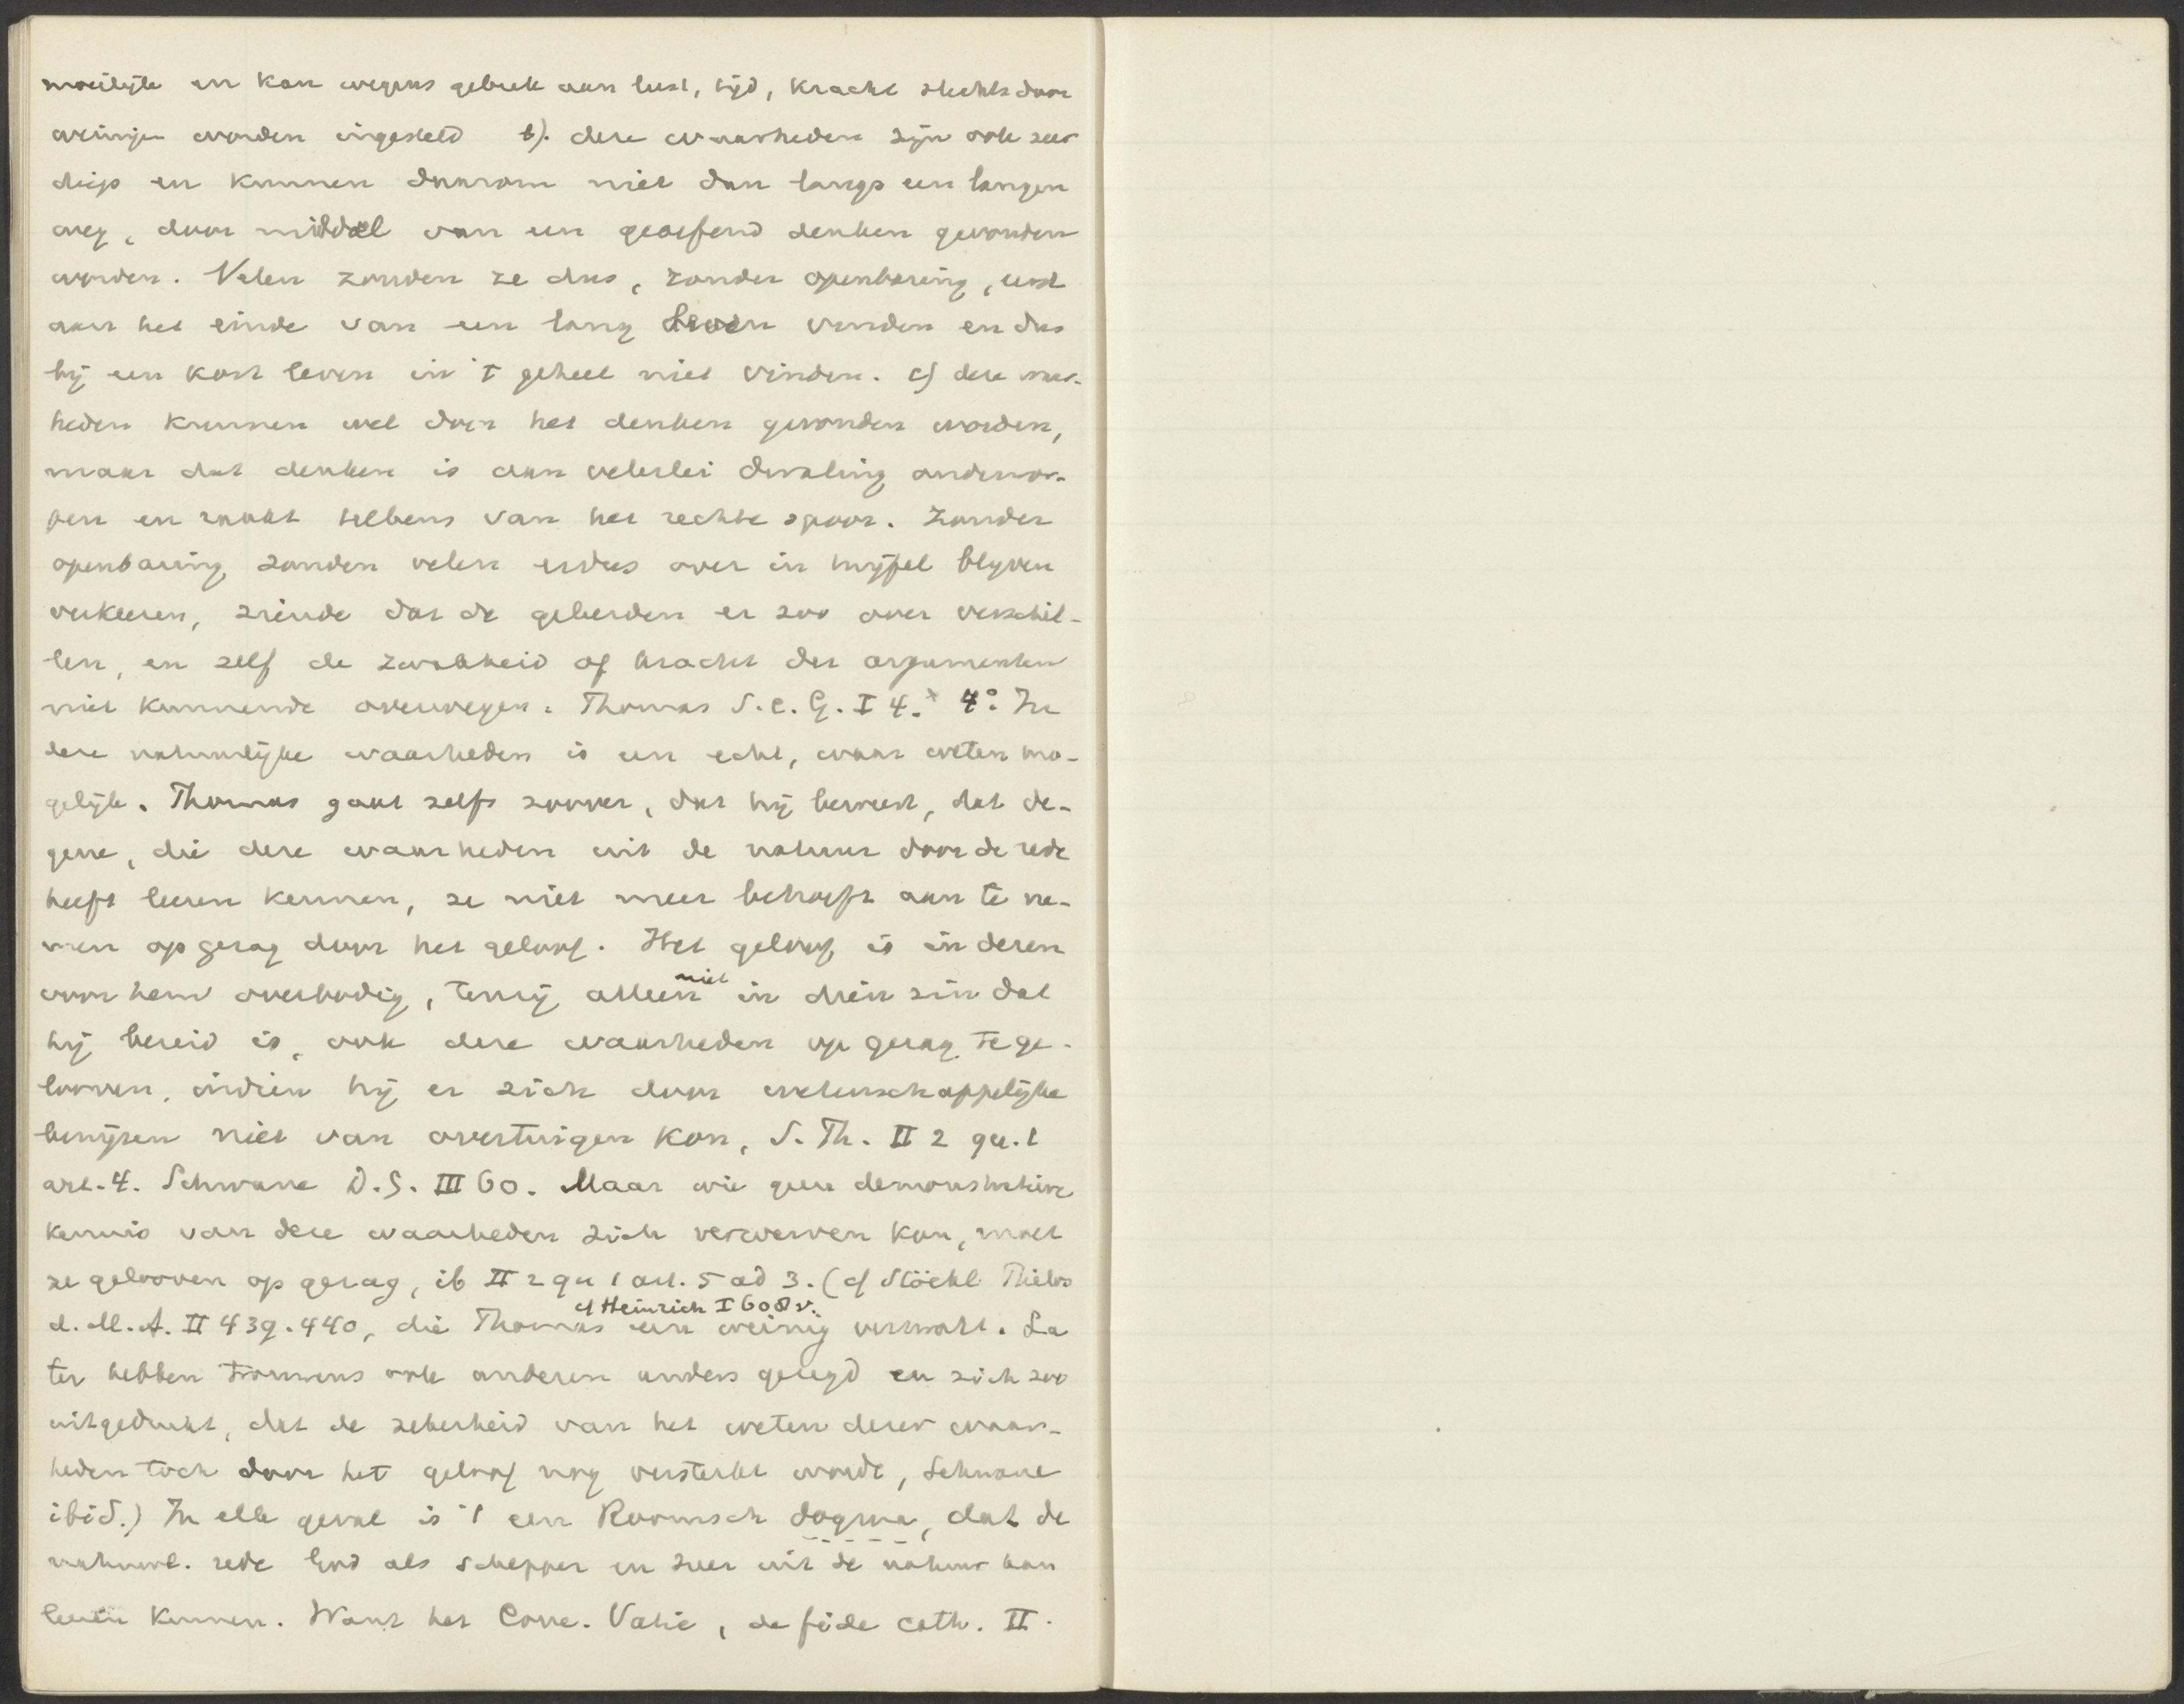 moeilijk en kan wegens gebrek aan lust, tijd, kracht slechts door
weinigen worden ingesteld b). deze waarheden zijn ook zeer
diep en kunnen daarom niet dan langs een langen
weg, door middel van een geoefend denken gevonden
worden. Velen zouden ze dus, zonder openbaring, eerst
aan het einde van een lang leven vinden en dus
bij een kort leven in 't geheel niet vinden. c) deze waar-
heden kunnen wel door het denken gevonden worden,
maar dat denken is aan velerlei dwaling onderwor-
pen en raakt telkens van het rechte spoor. Zonder
openbaring zouden velen er dus over in twijfel blijven
verkeeren, ziende dat de geleerden er zoo over verschil-
len, en zelf de zwakheid of kracht der argumenten
niet kunnende overwegen. Thomas S. c. G. I 4. x 4° In
deze natuurlijke waarheden is een echt, waar weten mo-
gelijk. Thomas gaat zelfs zoover, dat hij beweert, dat de-
gene, die deze waarheden uit de natuur door de rede
heeft leeren kennen, ze niet meer behoeft aan te ne-
men op gezag door het geloof. Het geloof is in dezen
voor hem overbodig, tenzij alleen niet in dien zin dat
hij bereid is, ook deze waarheden op gezag te ge-
looven, indien hij er zich door wetenschappelijke
bewijzen niet van overtuigen kon, S. Th. II 2 qu. 1
art. 4. Schwane D.G. III 60. Maar wie geen demonstratieve
kennis van deze waarheden zich verwerven kon, moet
ze gelooven op gezag, ib II 2 qu 1 art. 5 ad 3. (cf Stöckl Philos
cf Heinrich I 608 v.
d. M. A. II 439. 440, die Thomas een weinig verzacht. La
ter hebben trouwens ook anderen anders gezegd en zich zoo
uitgedrukt, dat de zekerheid van het weten dezer waar-
heden toch door het geloof nog versterkt wordt, Schwane
ibid.) In elk geval is 't een Roomsch dogma, dat de
natuurl. rede God als schepper en heer uit de natuur kan
leeren kennen. Want het Conc. Vatic, de fide cath. II.